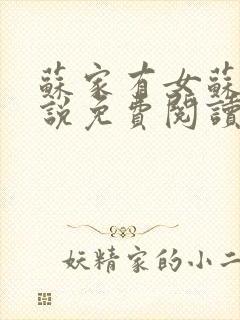 蘇家有女蘇
說免費閱讀
妖精家的小二